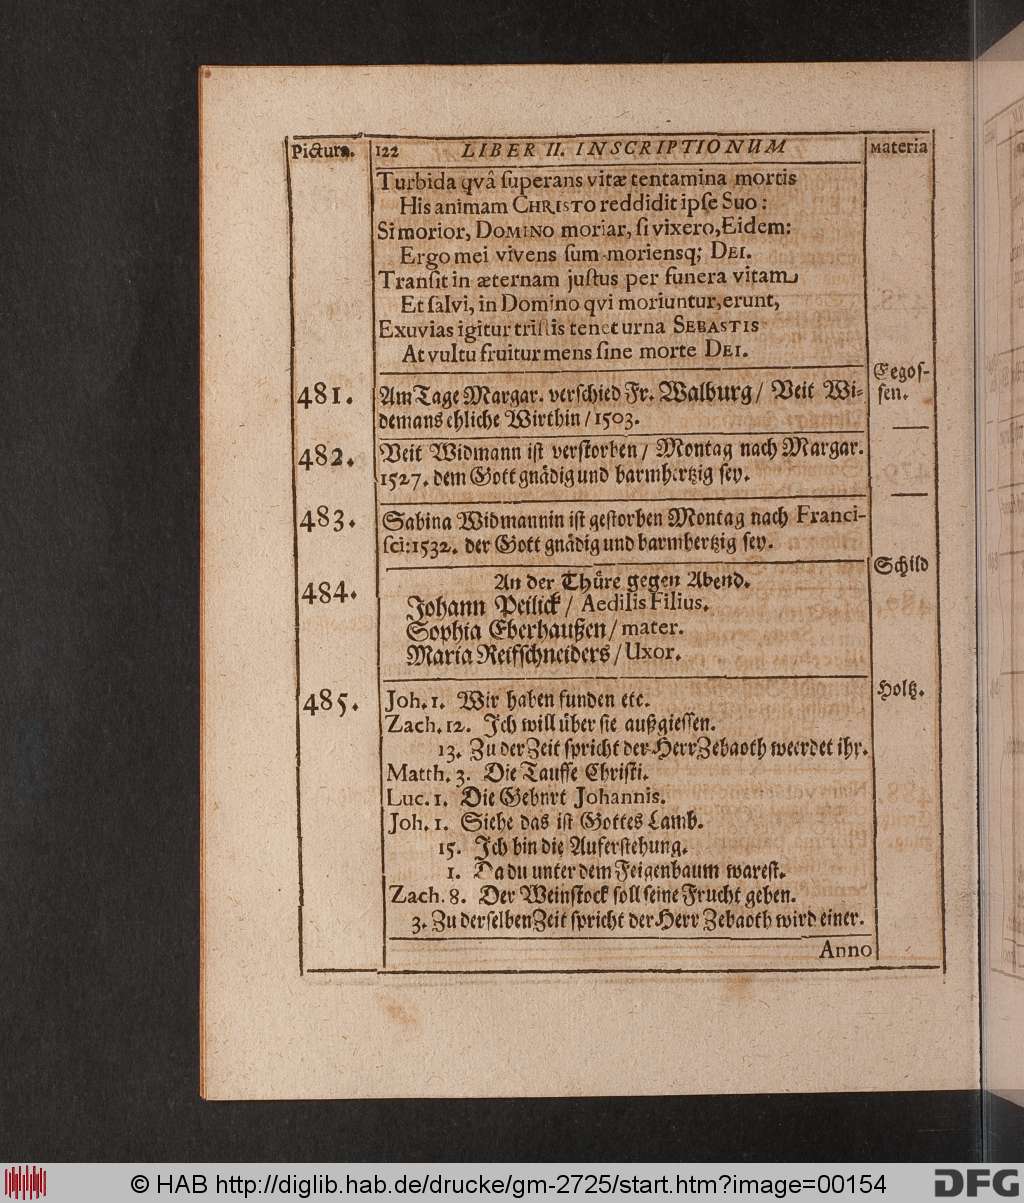 Pictura. 122 LIBER II. INSCRIPTIONUM Materia
Turbida qvâ ſuperans vitæ tentamina mortis
His animam CHRISTO reddidit ipſe Suo:
Si morior, DOMINO moriar, ſi vixero, Eidem:
Ergo mei vivens ſum moriensq; DEI.
Tranſit in æternam juſtus per funera vitam
Et ſalvi, in Domino qvi moriuntur, erunt,
Exuvias igitur triſtis tenet urna SEBASTIS
At vultu fruitur mens ſine morte DEI.
481. Am Tage Margar. verſchied Fr. Walburg / Veit Wi- Gegoſ-
demans ehliche Wirthin / 1503. ſen.
482. Veit Widmann iſt verſtorben / Montag nach Margar.
1527. dem Gott gnädig und barmhertzig ſey.
483. Sabina Widmannin iſt geſtorben Montag nach Franci-
ſci: 1532. der Gott gnädig und barmhertzig ſey.
484. An der Thüre gegen Abend. Schild
Johann Peilick / Aedilis Filius.
Sophia Eberhaußen / mater.
Maria Reifſchneiders / Uxor.
485. Joh. 1. Wir haben funden etc. Holtz.
Zach. 12. Ich will über ſie außgieſſen.
13. Zu der Zeit ſpricht der Herr Zebaoth weerdet ihr.
Matth. 3. Die Tauffe Chriſti.
Luc. 1. Die Geburt Johannis.
Joh. 1. Siehe das iſt Gottes Lamb.
15. Ich bin die Auferſtehung.
1. Da du unter dem Feigenbaum wareſt.
Zach. 8. Der Weinſtock ſoll ſeine Frucht geben.
3. Zu derſelben Zeit ſpricht der Herr Zebaoth wird einer.
Anno
© HAB http://diglib.hab.de/drucke/gm-2725/start.htm?image=00154
DFG